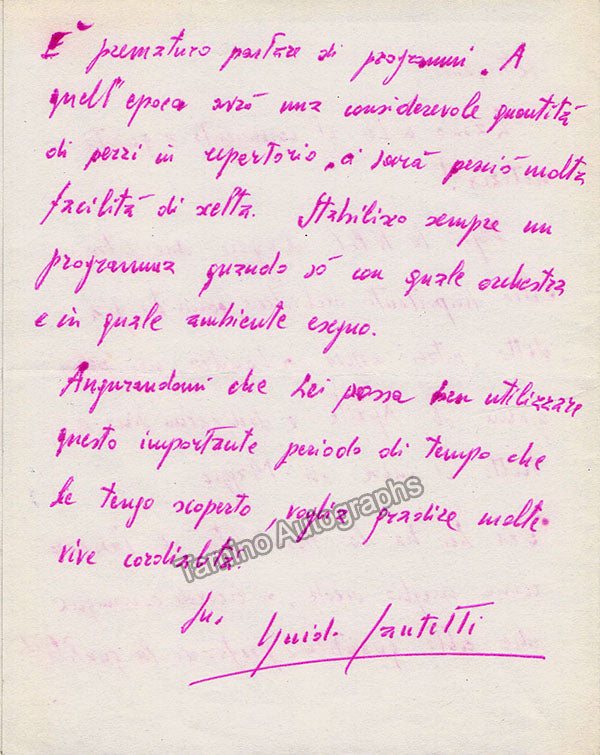 E' prematuro parlare di programmi. A
quell'epoca avrò una considerevole quantità
di pezzi in repertorio, ci sarà perciò molta
facilità di scelta. Stabilisco sempre un
programma quando so con quale orchestra
e in quale ambiente eseguo.
Augurandomi che Lei possa ben utilizzare
questo importante periodo di tempo che
Le tengo scoperto, voglia gradire molte
vive cordialità.
Suo
Guido Cantelli
Tamino Autographs